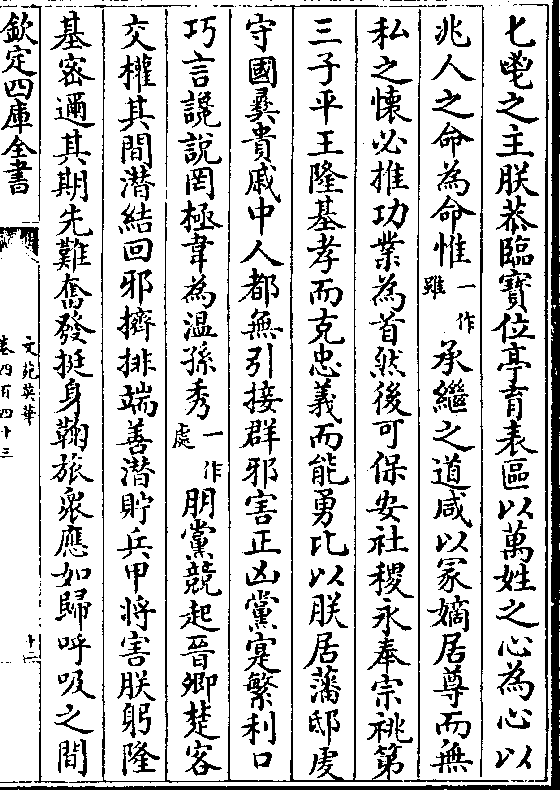 七鬯之主朕恭臨寶位亭育表區以萬姓之心為心以
兆人之命為命惟一作雖承繼之道咸以冢嫡居尊而無
私之懷必推功業為首然後可保安社稷永奉宗祧第
三子平王隆基孝而克忠義而能勇比以朕居藩邸虔
守國彞貴戚中人都無引接群邪害正凶黨寔繁利口
巧言讒說罔極韋為温孫秀一作處朋黨競起晉卿楚客
交權其間潛結回邪擠排端善潛貯兵甲將害朕躬隆
基密邇其期先難奮發挺身鞠旅衆應如歸呼吸之間
欽定四庫全書
文苑英華
卷四百四十三
十二